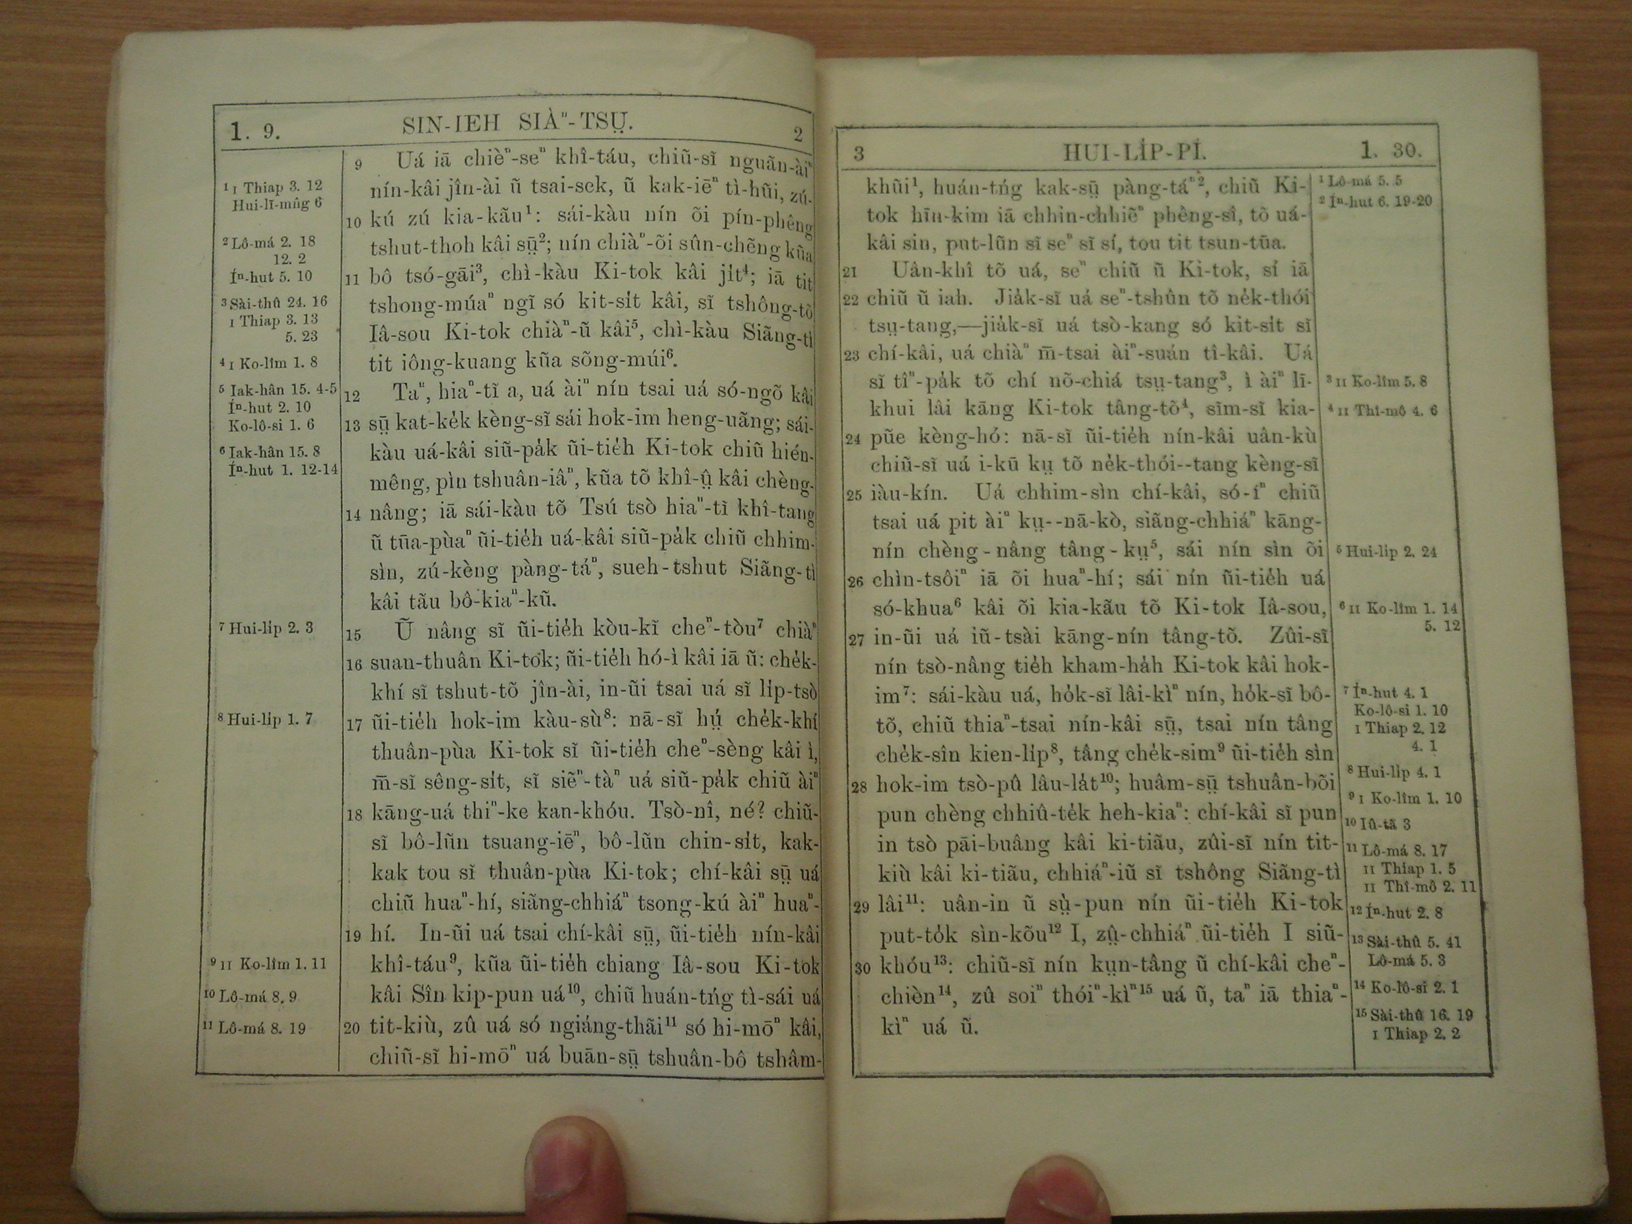 1. 9. SIN-IEH SIÀⁿ-TSṲ. 2
¹ I Thiap 3. 12
Hui-lī-mûg 6
² Lô-má 2. 18
12. 2
Íⁿ-hut 5. 10
³ Sài-thû 24. 16
I Thiap 3. 13
5. 23
⁴ I Ko-lîm 1. 8
⁵ Iak-hân 15. 4-5
Íⁿ-hut 2. 10
Ko-lô-si 1. 6
⁶ Iak-hân 15. 8
Íⁿ-hut 1. 12-14
⁷ Hui-li̍p 2. 3
⁸ Hui-li̍p 1. 7
⁹ II Ko-lîm 1. 11
¹⁰ Lô-má 8. 9
¹¹ Lô-má 8. 19
9 Uá iā chièⁿ-seⁿ khî-táu, chiũ-sĩ nguãn-àiⁿ
nín-kâi jîn-ài ũ tsai-sek, ũ kak-iēⁿ tì-hũi, zú-
10 kú zú kia-kãu¹: sái-kàu nín õi pín-phêng
tshut-thoh kâi sṳ̄²; nín chiàⁿ-õi sûn-chẽng kũa
11 bô tsó-gāi³, chì-kàu Ki-tok kâi ji̍t⁴; iā tit
tshong-múaⁿ ngĩ só kit-si̍t kâi, sĩ tshông-tõ
Iâ-sou Ki-tok chiàⁿ-ũ kâi⁵, chì-kàu Siãng-tì
tit iông-kuang kũa sõng-múi⁶.
12 Taⁿ, hiaⁿ-tĩ a, uá àiⁿ nín tsai uá só-ngõ kâi
13 sṳ̄ kat-ke̍k kèng-sĩ sái hok-im heng-uãng; sái-
kàu uá-kâi siũ-pa̍k ũi-tie̍h Ki-tok chiũ hién-
mêng, pìn tshuân-iâⁿ, kũa tõ khî-ṳ̂ kâi chèng-
14 nâng; iā sái-kàu tõ Tsú tsò hiaⁿ-tĩ khî-tang
ũ tũa-pùaⁿ ũi-tie̍h uá-kâi siũ-pa̍k chiũ chhim-
sìn, zú-kèng pàng-táⁿ, sueh-tshut Siãng-tì
kâi tãu bô-kiaⁿ-kũ.
15 Ũ nâng sĩ ũi-tie̍h kòu-kĩ cheⁿ-tòu⁷ chiàⁿ
16 suan-thuân Ki-tok; ũi-tie̍h hó-ì kâi iā ũ: che̍k-
khí sĩ tshut-tõ jîn-ài, in-ũi tsai uá sĩ li̍p-tsò
17 ũi-tie̍h hok-im kàu-sù⁸: nā-sĩ hṳ́ che̍k-khí
thuân-pùa Ki-tok sĩ ũi-tie̍h cheⁿ-sèng kâi ì,
m̄-sĩ sêng-si̍t, sĩ siẽⁿ-tàⁿ uá siũ-pa̍k chiũ àiⁿ
18 kāng-uá thiⁿ-ke kan-khóu. Tsò-nî, né? chiũ-
sĩ bô-lũn tsuang-iēⁿ, bô-lũn chin-si̍t, kak-
kak tou sĩ thuân-pùa Ki-tok; chí-kâi sṳ̄ uá
chiũ huaⁿ-hí, siãng-chhiáⁿ tsong-kú àiⁿ huaⁿ-
19 hí. In-ũi uá tsai chí-kâi sṳ̄, ũi-tie̍h nín-kâi
khî-táu⁹, kũa ũi-tie̍h chiang Iâ-sou Ki-tok
kâi Sîn kip-pun uá¹⁰, chiũ huán-tńg tì-sái uá
20 tit-kiù, zû uá só ngiáng-thãi¹¹ só hi-mōⁿ kâi,
chiũ-sĩ hi-mōⁿ uá buān-sṳ̄ tshuân-bô tshâm-
3 HUI-LI̍P-PÍ. 1. 30.
khũi¹, huán-tńg kak-sṳ̄ pàng-táⁿ², chiũ Ki-
tok hīn-kim iā chhin-chhiẽⁿ phêng-sî, tõ uá-
kâi sin, put-lũn sĩ seⁿ sĩ sí, tou tit tsun-tũa.
21 Uân-khî tõ uá, seⁿ chiũ ũ Ki-tok, sí iā
22 chiũ ũ iah. Jia̍k-sĩ uá seⁿ-tshûn tõ ne̍k-thói
tsṳ-tang,—jia̍k-sĩ uá tsò-kang só kit-si̍t sĩ
23 chí-kâi, uá chiàⁿ m̄-tsai àiⁿ-suán tî-kâi. Uá
sĩ tîⁿ-pa̍k tõ chí nõ-chiá tsṳ-tang³, ì àiⁿ lī-
khui lâi kāng Ki-tok tâng-tõ⁴, sĩm-sĩ kia-
24 pũe kèng-hó: nā-sĩ ũi-tie̍h nín-kâi uân-kù
chiũ-sĩ uá i-kū kṳ tõ ne̍k-thói--tang kèng-sĩ
25 iàu-kín. Uá chhim-sìn chí-kâi, só-íⁿ chiũ
tsai uá pit àiⁿ kṳ--nā-kò, siãng-chhiáⁿ kāng-
nín chèng-nâng tâng-kṳ⁵, sái nín sìn õi
26 chìn-tsôiⁿ iā õi huaⁿ-hí; sái nín ũi-tie̍h uá
só-khua⁶ kâi õi kia-kãu tõ Ki-tok Iâ-sou,
27 in-ũi uá iũ-tsài kāng-nín tâng-tõ. Zûi-sĩ
nín tsò-nâng tie̍h kham-ha̍h Ki-tok kâi hok-
im⁷: sái-kàu uá, ho̍k-sĩ lâi-kìⁿ nín, ho̍k-sĩ bô-
tõ, chiũ thiaⁿ-tsai nín-kâi sṳ̄, tsai nín tâng
che̍k-sîn kien-li̍p⁸, tâng che̍k-sim⁹ ũi-tie̍h sìn
28 hok-im tsò-pû lâu-la̍t¹⁰; huâm-sṳ̄ tshuân-bõi
pun chèng chhiû-te̍k heh-kiaⁿ: chí-kâi sĩ pun
in tsò pāi-buâng kâi ki-tiãu, zûi-sĩ nín tit-
kiù kâi ki-tiãu, chhiáⁿ-iũ sĩ tshông Siãng-tì
29 lâi¹¹: uân-in ũ sṳ̀-pun nín ũi-tie̍h Ki-tok
put-to̍k sìn-kõu¹² I, zṳ̂-chhiáⁿ ũi-tie̍h I siũ-
30 khóu¹³: chiũ-sĩ nín kṳn-tâng ũ chí-kâi cheⁿ-
chièn¹⁴, zû soiⁿ thóiⁿ-kìⁿ¹⁵ uá ũ, taⁿ iā thiaⁿ-
kìⁿ uá ũ.
¹ Lô-má 5. 5
² Íⁿ-hut 6. 19-20
³ II Ko-lîm 5. 8
⁴ II Thî-mô 4. 6
⁵ Hui-li̍p 2. 24
⁶ II Ko-lîm 1. 14
5. 12
⁷ Íⁿ-hut 4. 1
Ko-lô-si 1. 10
I Thiap 2. 12
4. 1
⁸ Hui-li̍p 4. 1
⁹ I Ko-lîm 1. 10
¹⁰ Iû-tā 3
¹¹ Lô-má 8. 17
II Thiap 1. 5
II Thî-mô 2. 11
¹² Íⁿ-hut 2. 8
¹³ Sài-thû 5. 41
Lô-má 5. 3
¹⁴ Ko-lô-sî 2. 1
¹⁵ Sài-thû 16. 19
I Thiap 2. 2